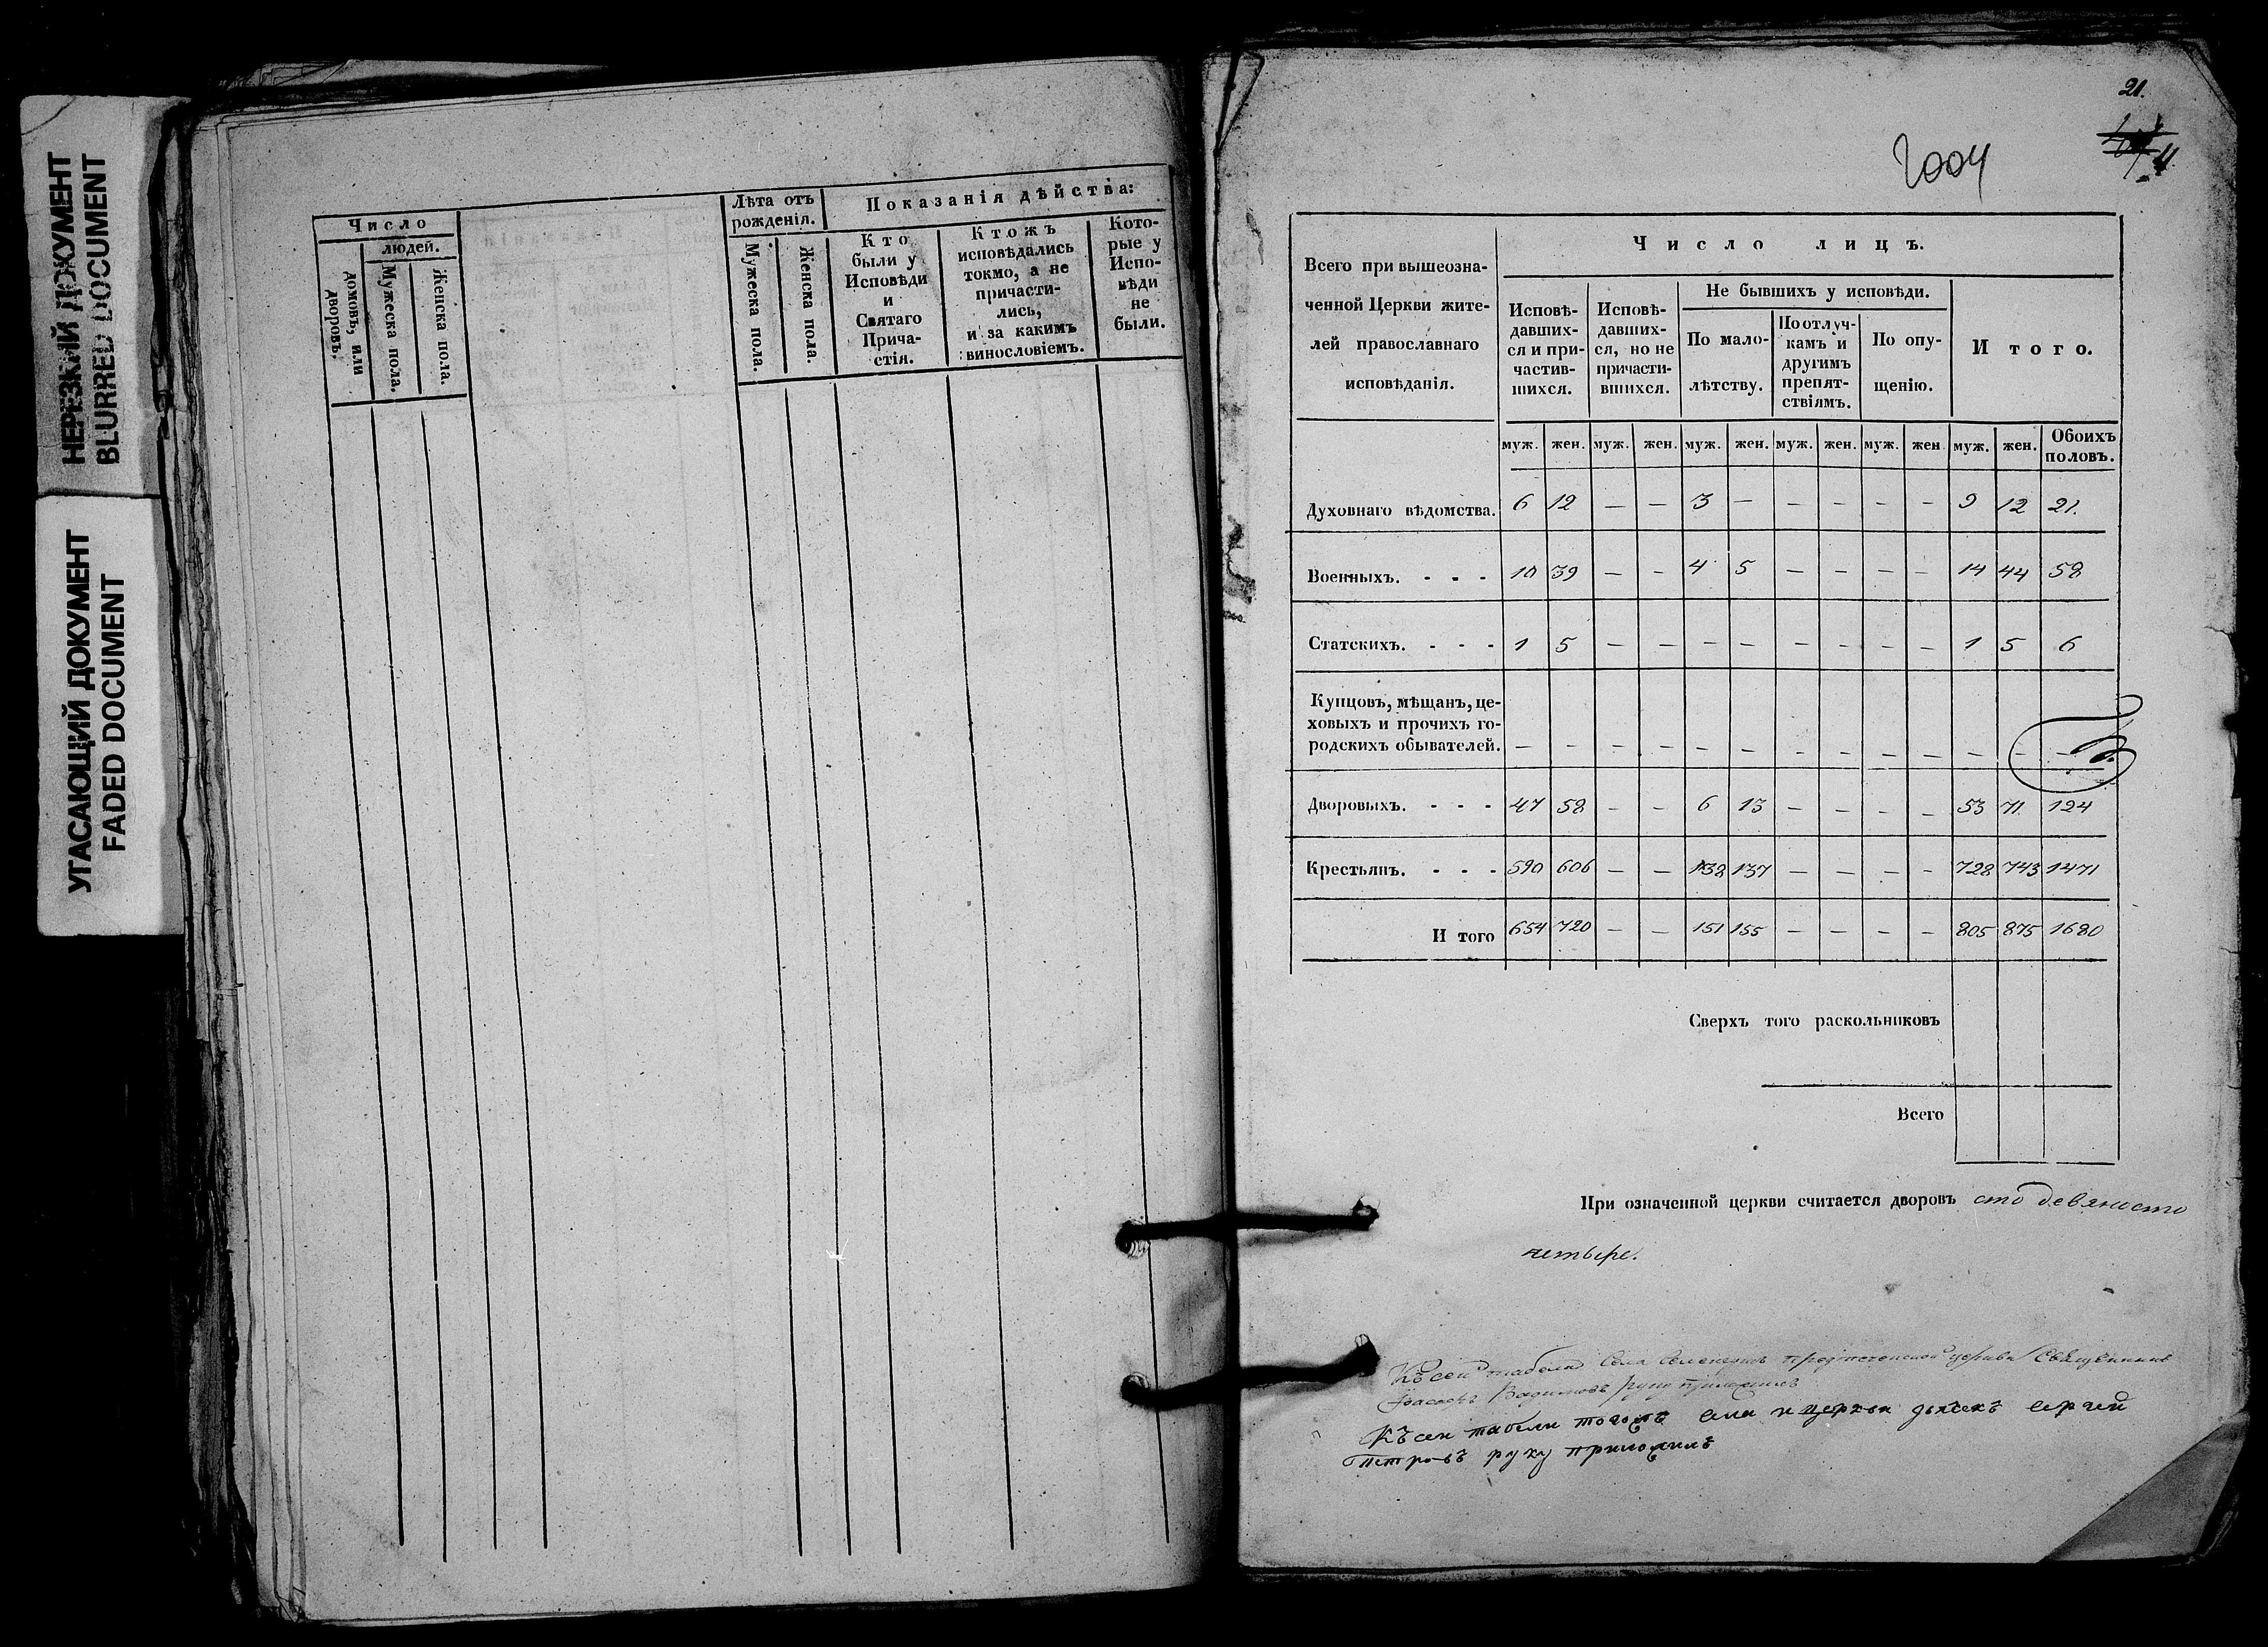 НЕРЕЗКИЙ ДОКУМЕНТ
BLURRED DOCUMENT
УГАСАЮЩИЙ ДОКУМЕНТ
FADED DOCUMENT
Число
людей.
домовъ, или
дворовъ.
Мужеска пола.
Женска пола.
Лѣта отъ
рожденія.
Мужеска пола.
Женска пола.
Показанія дѣйства:
Кто
были у
Исповѣди
и
Святаго
Прича-
стія.
Ктожъ
исповѣдались
токмо, а не
причасти-
лись,
и за какимъ
винословіемъ.
Кото-
рые у
Испо-
вѣди
не
были.
21.
2004
Всего при вышеозна-
ченной Церкви жите-
лей православнаго
исповѣданія.
Число лицъ.
Исповѣ-
давших-
ся и при-
частив-
шихся.
Исповѣ-
давших-
ся, но не
причасти-
вшихся.
Не бывшихъ у исповѣди.
По мало-
лѣтству.
По отлуч-
камъ и
другимъ
препят-
ствіямъ.
По опу-
щенію.
И того.
муж. жен. муж. жен. муж. жен. муж. жен. муж. жен муж. жен. Обоихъ
половъ.
Духовнаго вѣдомства. 6 12 — — 3 — — — — — 9 12 21.
Военныхъ. - - - 10 39 — — 4 5 — — — — 14 44 58
Статскихъ. - - - 1 5 — — — — — — — — 1 5 6
Купцовъ, мѣщанъ, це-
ховыхъ и прочихъ го-
родскихъ обывателей. — — — — — — — — — — — — —
Дворовыхъ. - - - 47 58 — — 6 13 — — — — 53 71 124
Крестьянъ. - - - 590 606 — — 138 137 — — — — 728 743 1471
И того 654 720 — — 151 155 — — — — 805 875 1680
Сверхъ того раскольниковъ
Всего
При означенной церкви считается дворовъ сто девяносто
четыре.
Къ сей табели Села церкви Священникъ
руку приложилъ
Къ сей табели тогожъ села и церкви дьячекъ Сергей
Петровъ руку приложилъ